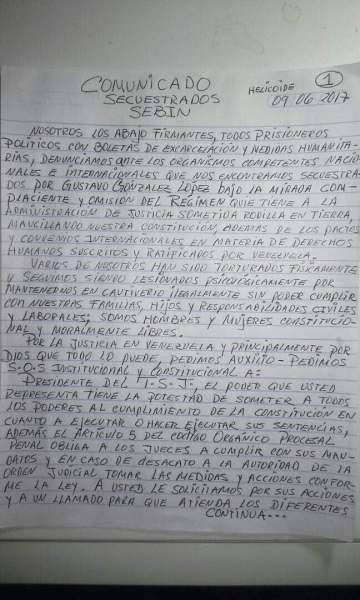 1
COMUNICADO
HELICOIDE
SECUESTRADOS
09 06 2017
SEBIN
NOSOTROS LOS ABAJO FIRMANTES, TODOS PRISIONEROS
POLÍTICOS CON BOLETAS DE EXCARCELACIÓN Y MEDIDAS HUMANITA-
RIAS, DENUNCIAMOS ANTE LOS ORGANISMOS COMPETENTES NACIO-
NALES E INTERNACIONALES QUE NOS ENCONTRAMOS SECUESTRA-
DOS POR GUSTAVO GONZALES LÓPEZ BAJO LA MIRADA COM-
PLACIENTE Y OMISIÓN DEL RÉGIMEN QUIE TIENE A LA
ADMINISTRACIÓN DE JUSTICIA SOMETIDA RODILLA EN TIERRA,
MANCILLANDO NUESTRA CONSTITUCIÓN, ADEMAS DE LOS PACTOS
Y CONVENIOS INTERNACIONALES EN MATERIA DE DERECHOS
HUMANOS SUSCRITOS Y RATIFICADOS POR VENEZUELA.
VARIOS DE NOSOTROS HAN SIDO TORTURADOS FÍSICAMENTE
Y SEGUIMOS SIENDO LESIONADOS PSICOLÓGICAMENTE POR
MANTENERNOS EN CAUTIVERIO ILEGALMENTE SIN PODER CUMPLIR
CON NUESTRAS FAMILIAS, HIJOS Y RESPONSABILIDADES CIVILES
Y LABORALES; SOMOS HOMBRES Y MUJERES CONSTITUCIO-
NAL Y MORALMENTE LIBRES.
POR LA JUSTICIA EN VENEZUELA Y PRINCIPALMENTE POR
DIOS QUE TODO LO PUEDE, PEDIMOS AUXILIO - PEDIMOS
S.O.S INSTITUCIONAL Y CONSTITUCIONAL A:
PRESIDENTE DEL T.S.J., EL PODER QUE USTED
REPRESENTA TIENE LA POTESTAD DE SOMETER A TODOS
LOS PODERES AL CUMPLIMIENTO DE LA CONSTITUCIÓN EN
CUANTO A EJECUTAR O HACER EJECUTAR SUS SENTENCIAS,
ADEMÁS EL ARTÍCULO 5 DEL CÓDIGO ORGÁNICO PROCESAL
PENAL OBLIGA A LOS JUECES A CUMPLIR CON SUS MAN-
DATOS Y EN CASO DE DESACATO A LA AUTORIDAD DE LA
ORDEN JUDICIAL TOMAR LAS MEDIDAS Y ACCIONES CONFOR-
ME LA LEY. A USTED LE SOLICITAMOS POR SUS ACCIONES
Y A UN LLAMADO PARA QUE ATIENDA LOS DIFERENTES
CONTINUA...